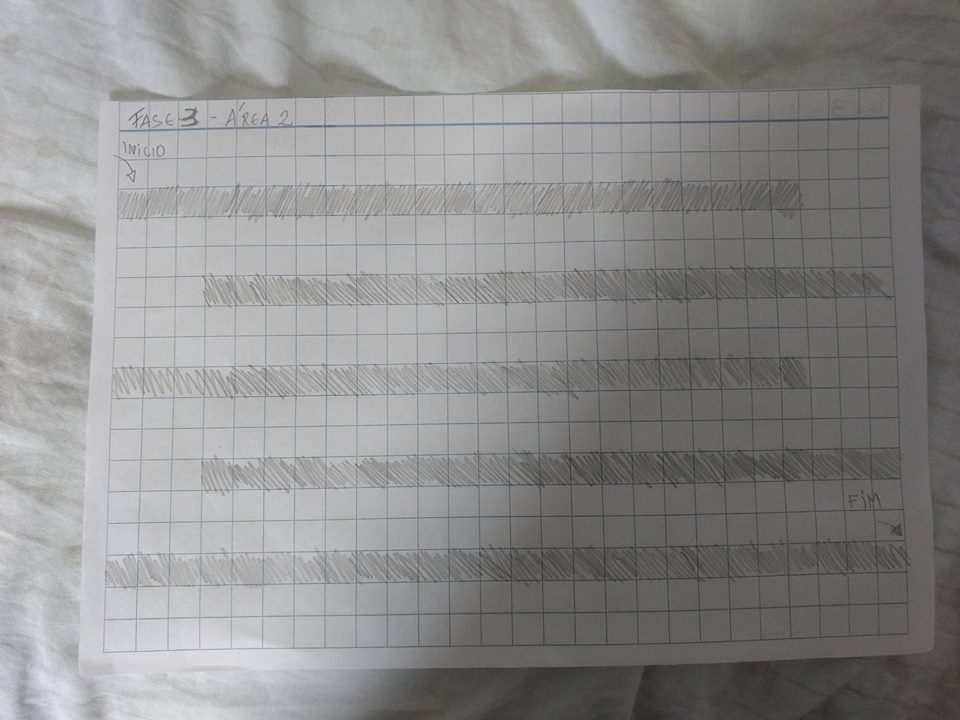 FASE 3 - ÁREA 2
INÍCIO
FIM